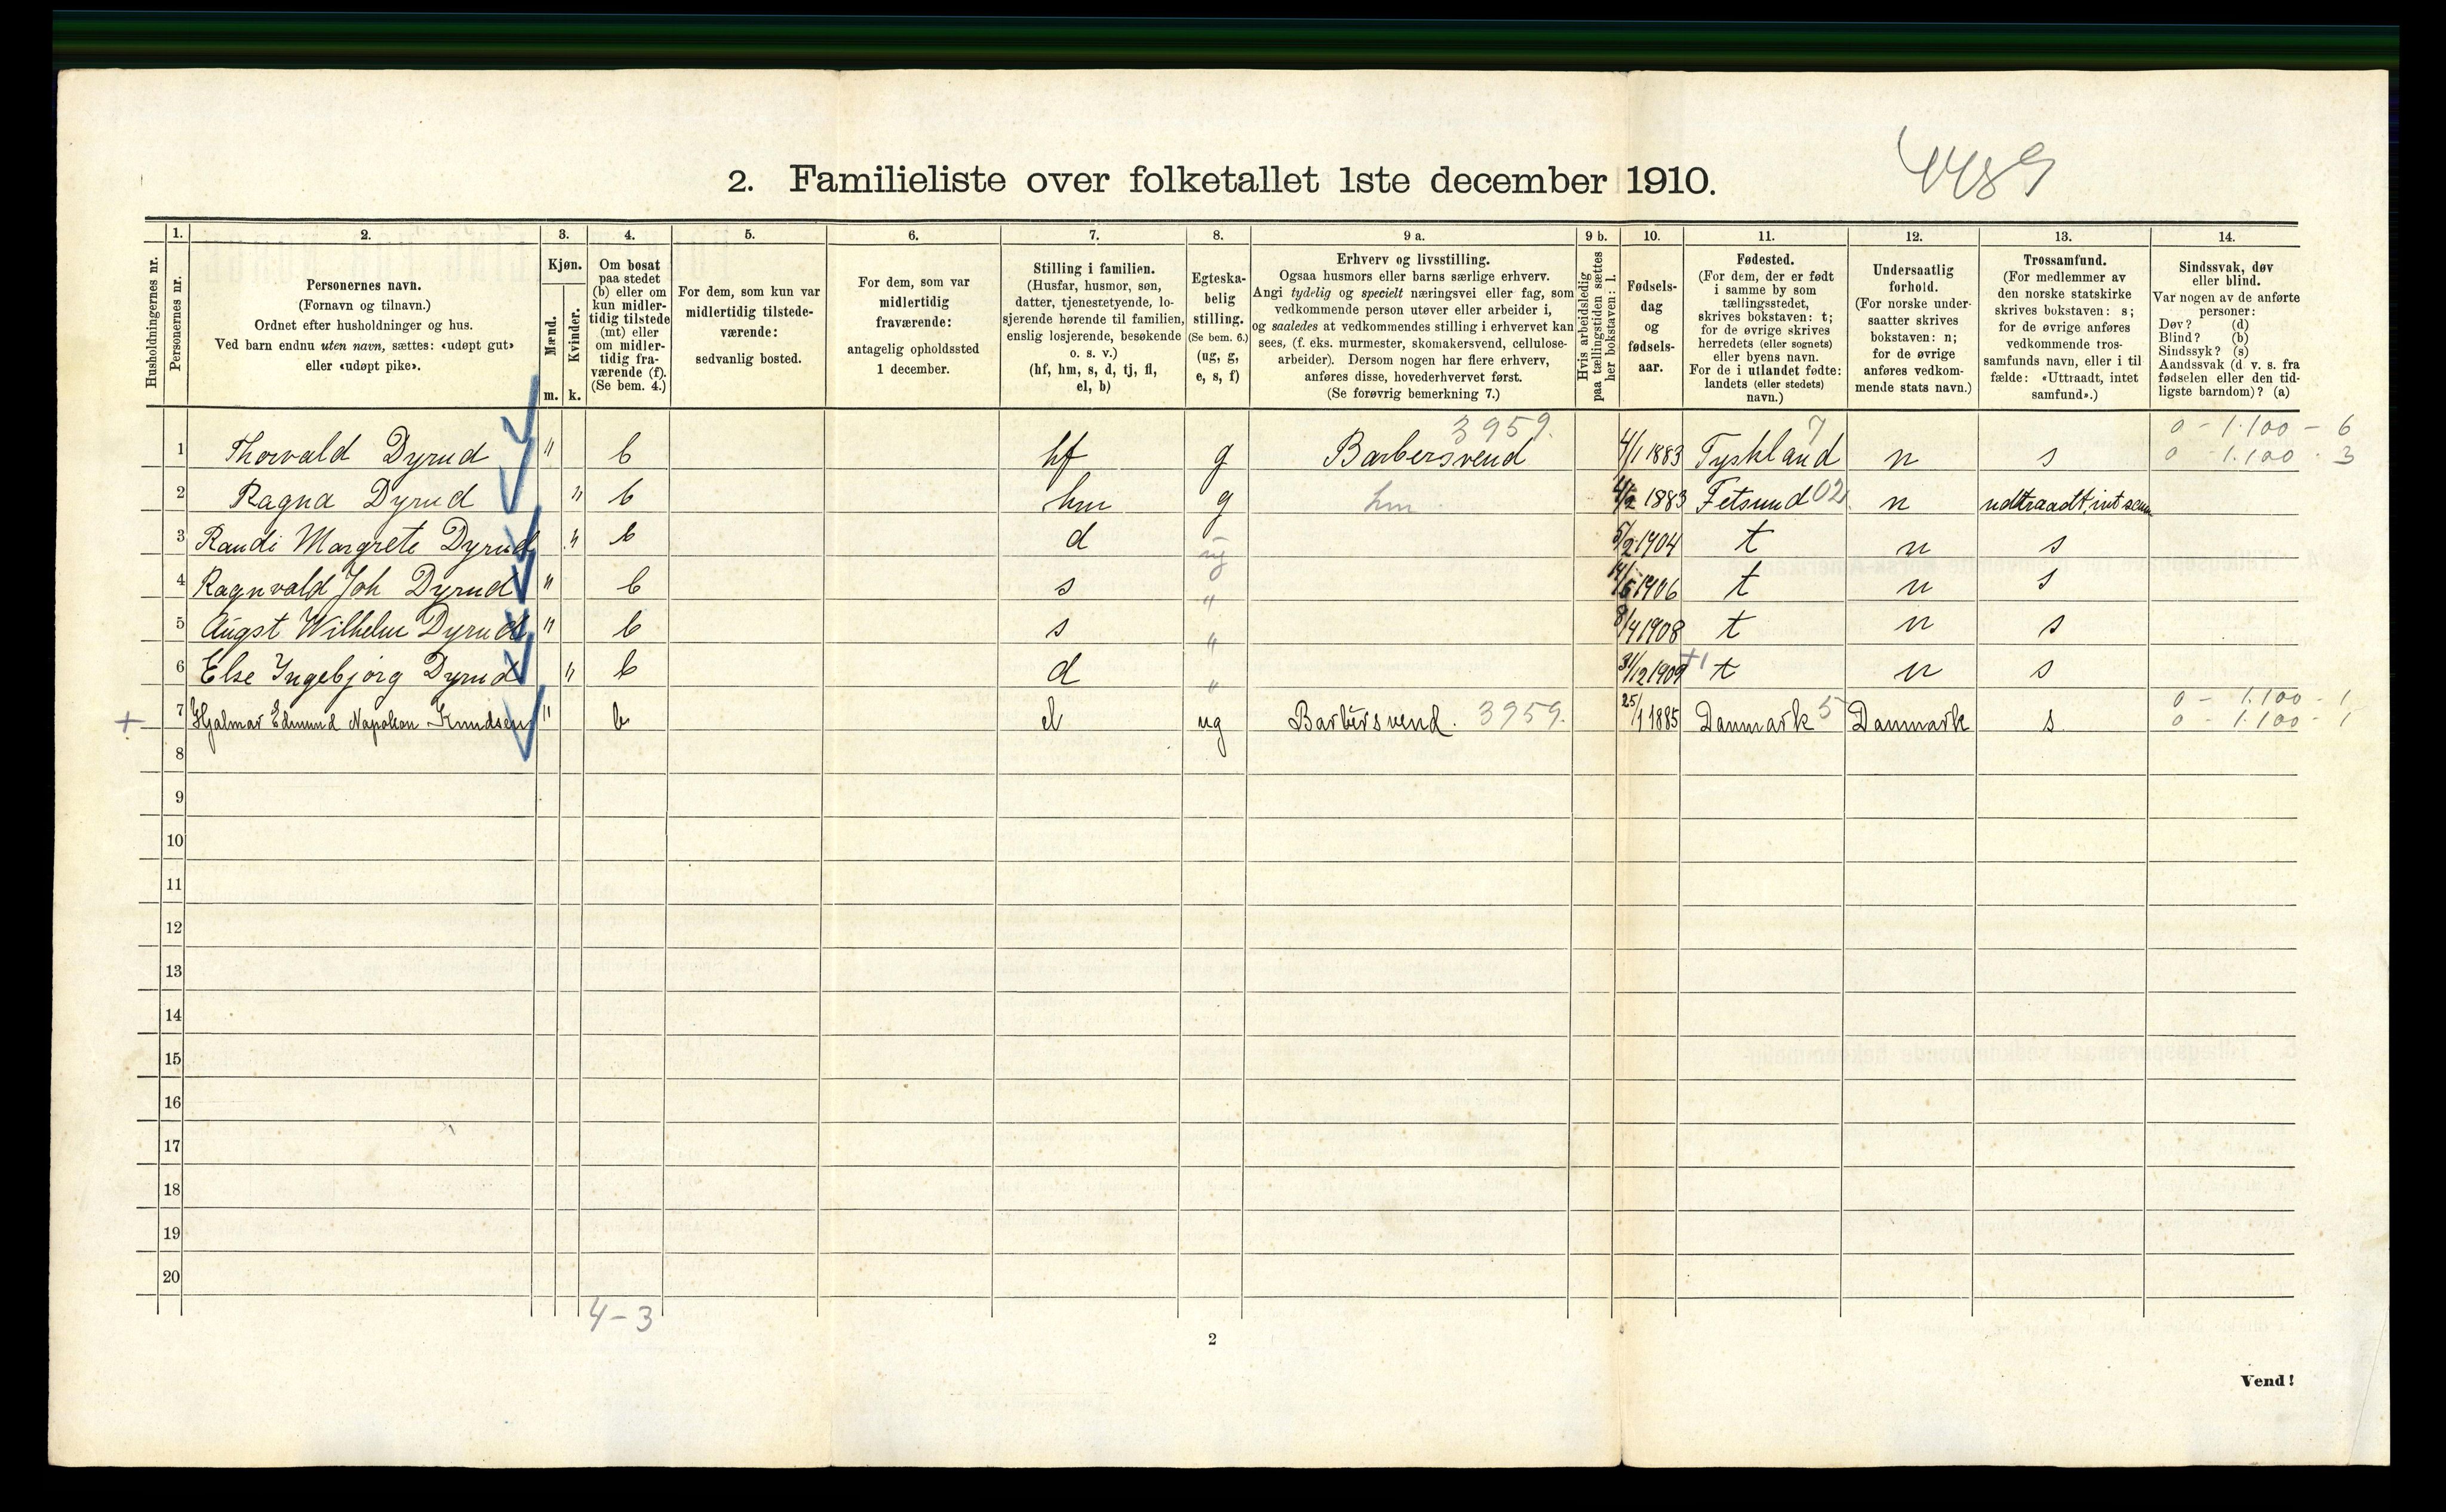 4489
2. Familieliste over folketallet 1ste december 1910.
1. 2. 3. 4. 5. 6. 7. 8. 9 a. 9 b. 10. 11. 12. 13. 14.
Husholdningernes nr.
Personernes nr.
Personernes navn.
(Fornavn og tilnavn.)
Ordnet efter husholdninger og hus.
Ved barn endnu uten navn, sættes: «udøpt gut»
eller «udøpt pike».
Kjøn.
Mænd.
Kvinder.
m. k.
Om bosat
paa stedet
(b) eller om
kun midler-
tidig tilstede
(mt) eller
om midler-
tidig fra-
værende (f).
(Se bem. 4.)
For dem, som kun var
midlertidig tilstede-
værende:
sedvanlig bosted.
For dem, som var
midlertidig
fraværende:
antagelig opholdssted
1 december.
Stilling i familien.
(Husfar, husmor, søn,
datter, tjenestetyende, lo-
sjerende hørende til familien,
enslig losjerende, besøkende
o. s. v.)
(hf, hm, s, d, tj, fl,
el, b)
Egteska-
belig
stilling.
(Se bem. 6.)
(ug, g,
e, s, f)
Erhverv og livsstilling.
Ogsaa husmors eller barns særlige erhverv.
Angi tydelig og specielt næringsvei eller fag, som
vedkommende person utøver eller arbeider i,
og saaledes at vedkommendes stilling i erhvervet kan
sees, (f. eks. murmester, skomakersvend, cellulose-
arbeider). Dersom nogen har flere erhverv,
anføres disse, hovederhvervet først.
(Se forøvrig bemerkning 7.)
Hvis arbeidsledig
paa tællingstiden sættes
her bokstaven: l.
Fødsels-
dag
og
fødsels-
aar.
Fødested.
(For dem, der er født
i samme by som
tællingsstedet,
skrives bokstaven: t;
for de øvrige skrives
herredets (eller sognets)
eller byens navn.
For de i utlandet fødte:
landets (eller stedets)
navn.)
Undersaatlig
forhold.
(For norske under-
saatter skrives
bokstaven: n;
for de øvrige
anføres vedkom-
mende stats navn.)
Trossamfund.
(For medlemmer av
den norske statskirke
skrives bokstaven: s;
for de øvrige anføres
vedkommende tros-
samfunds navn, eller i til
fælde: «Uttraadt, intet
samfund».)
Sindssvak, døv
eller blind.
Var nogen av de anførte
personer:
Døv? (d)
Blind? (b)
Sindssyk? (s)
Aandssvak (d v. s. fra
fødselen eller den tid-
ligste barndom)? (a)
3959. 7 0 - 1.100 - 6
1 Thorvald Dyrud " b hf g Barbersvend 4/1 1883 Tyskland n s 0 - 1.100 - 3
2 Ragna Dyrud " b hm g hm 4/2 1883 Fetsund 02 n udtraadt, int sam
3 Randi Margrete Dyrud " b d ug 5/2 1904 t n s
4 Ragnvald Joh Dyrud " b s " 14/6 1906 t n s
5 Augst Wilhelm Dyrud " b s " 8/4 1908 t n s
6 Else Ingebjørg Dyrud " b d " 31/12 1909 +1 t n s
0 - 1.100 - 1
+ 7 Hjalmar Edmund Napoleon Knudsen " b el ug Barbérsvend. 3959. 25/1 1885 Danmark 5 Danmark s 0 - 1.100 - 1
8
9
10
11
12
13
14
15
16
17
18
19
20
4-3
2
Vend!